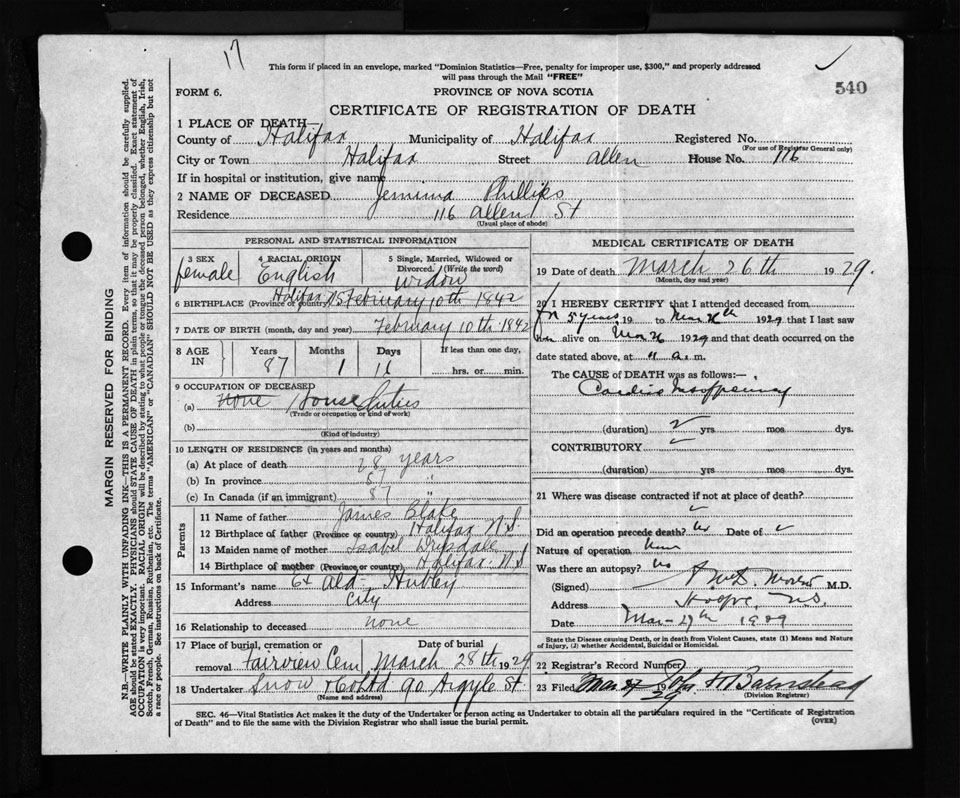 17
This form if placed in an envelope, marked "Dominion Statistics—Free, penalty for improper use, $300," and properly addressed
will pass through the Mail "FREE"
540
FORM 6. PROVINCE OF NOVA SCOTIA
CERTIFICATE OF REGISTRATION OF DEATH
1 PLACE OF DEATH
County of Halifax Municipality of Halifax Registered No.
(For use of Registrar General only)
City or Town Halifax Street Allen House No. 116
If in hospital or institution, give name
2 NAME OF DECEASED Jemima Phillips
Residence 116 Allen St
(Usual place of abode)
PERSONAL AND STATISTICAL INFORMATION
3 SEX female
4 RACIAL ORIGIN English
5 Single, Married, Widowed or Divorced. (Write the word) Widow
6 BIRTHPLACE (Province or country) Halifax NS February 10th 1842
7 DATE OF BIRTH (month, day and year) February 10th 1842
8 AGE IN Years 87 Months 1 Days 16 If less than one day, hrs. or min.
9 OCCUPATION OF DECEASED
(a) None House Duties
(Trade or occupation or kind of work)
(b)
(Kind of industry)
10 LENGTH OF RESIDENCE (in years and months)
(a) At place of death 28 years
(b) In province 87 "
(c) In Canada (if an immigrant) 87 "
Parents
11 Name of father James Blake
12 Birthplace of father (Province or country) Halifax N.S.
13 Maiden name of mother Isabel Drysdale
14 Birthplace of mother (Province or country) Halifax N.S
15 Informant's name Ex Ald- Hubley
Address City
16 Relationship to deceased none
17 Place of burial, cremation or removal Fairview Cem Date of burial March 28th 1929
18 Undertaker Snow & Co Ltd 90 Argyle St
(Name and address)
MEDICAL CERTIFICATE OF DEATH
19 Date of death March 26th 1929.
(Month, day and year)
20 I HEREBY CERTIFY that I attended deceased from
for 5 years 19 to Mar 26th 1929 that I last saw
her alive on Mar 26 1929 and that death occurred on the
date stated above, at 11 a.m.
The CAUSE OF DEATH was as follows:—
Cardiac
(duration) 2 yrs mos dys.
CONTRIBUTORY
(duration) yrs mos dys.
21 Where was disease contracted if not at place of death?
Did an operation precede death? No Date of
Nature of operation
Was there an autopsy? No
(Signed) M.D.
Address N.S.
Date Mar-27th 1929
State the Disease causing Death, or in death from Violent Causes, state (1) Means and Nature
of Injury, (2) whether Accidental, Suicidal or Homicidal.
22 Registrar's Record Number
23 Filed Mar 27 29
(Division Registrar)
SEC. 46—Vital Statistics Act makes it the duty of the Undertaker or person acting as Undertaker to obtain all the particulars required in the "Certificate of Registration
of Death" and to file the same with the Division Registrar who shall issue the burial permit. (OVER)
MARGIN RESERVED FOR BINDING
N.B.—WRITE PLAINLY WITH UNFADING INK—THIS IS A PERMANENT RECORD. Every item of information should be carefully supplied.
AGE should be stated EXACTLY. PHYSICIANS should STATE CAUSE OF DEATH in plain terms, so that it may be properly classified. Exact statement of
OCCUPATION is very important. RACIAL ORIGIN will be described by stating to what people or tongue the deceased person belonged, whether English, Irish,
Scotch, French, German, Russian, Ruthenian, etc. The terms "AMERICAN" or "CANADIAN" SHOULD NOT BE USED as they express citizenship but not
a race or people. See instructions on back of Certificate.